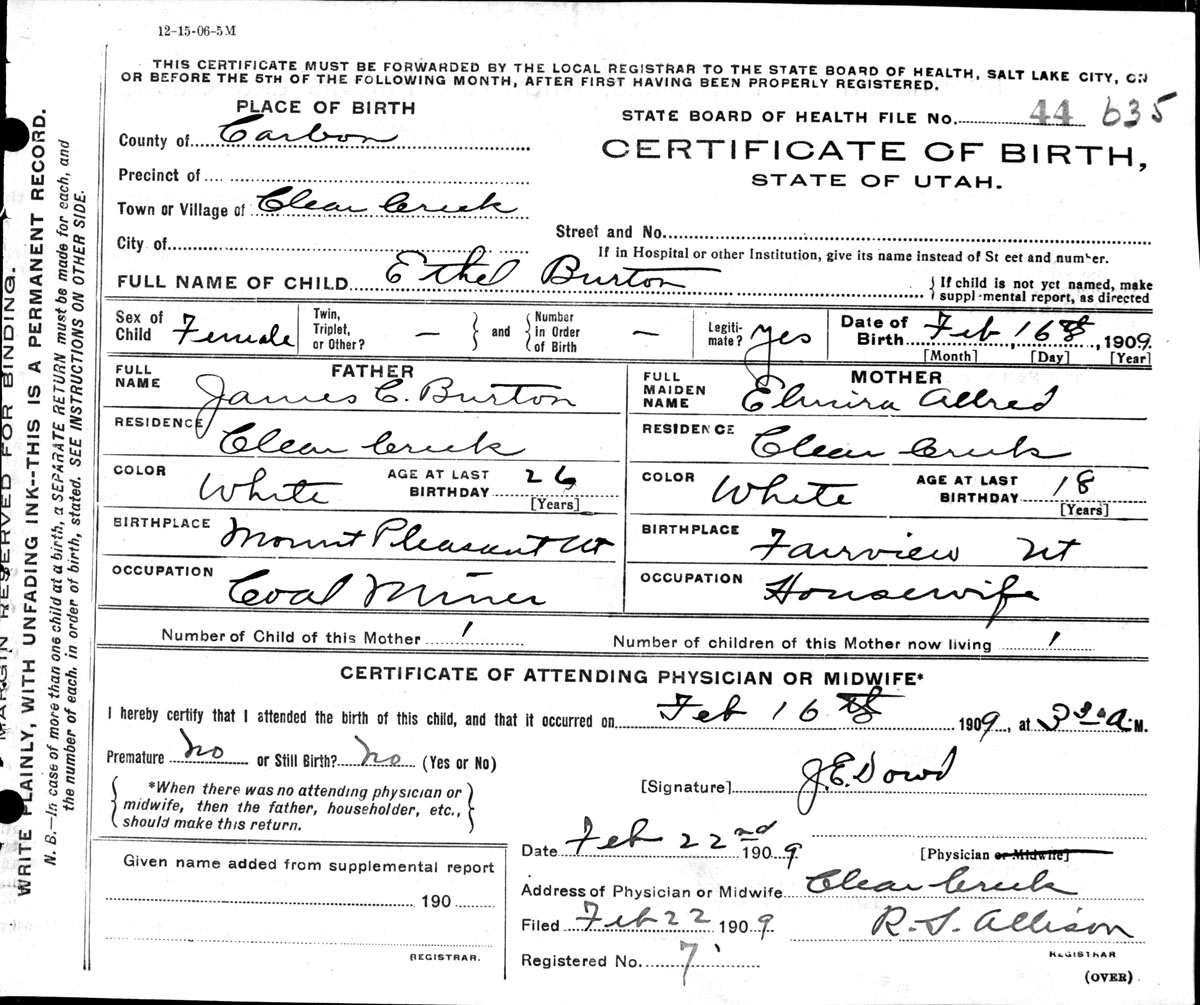 12-15-06-5M
THIS CERTIFICATE MUST BE FORWARDED BY THE LOCAL REGISTRAR TO THE STATE BOARD OF HEALTH, SALT LAKE CITY, ON
OR BEFORE THE 5TH OF THE FOLLOWING MONTH, AFTER FIRST HAVING BEEN PROPERLY REGISTERED.
PLACE OF BIRTH
STATE BOARD OF HEALTH FILE No. 44 635
County of Carbon
CERTIFICATE OF BIRTH,
STATE OF UTAH.
Precinct of
Town or Village of Clear Creek
Street and No.
City of
If in Hospital or other Institution, give its name instead of St eet and number.
FULL NAME OF CHILD Ethel Burton
{ If child is not yet named, make
suppl mental report, as directed
Sex of Child Female
Twin, Triplet, or Other? — and Number in Order of Birth —
Legiti-mate? Yes
Date of Birth Feb, 16th, 1909.
[Month] [Day] [Year]
FATHER
FULL NAME James C. Burton
RESIDENCE Clear Creek
COLOR White AGE AT LAST BIRTHDAY 26 [Years]
BIRTHPLACE Mount Pleasant Ut
OCCUPATION Coal Miner
MOTHER
FULL MAIDEN NAME Elmira Allred
RESIDENCE Clear Creek
COLOR White AGE AT LAST BIRTHDAY 18 [Years]
BIRTHPLACE Fairview Ut
OCCUPATION Housewife
Number of Child of this Mother 1
Number of children of this Mother now living 1
CERTIFICATE OF ATTENDING PHYSICIAN OR MIDWIFE*
I hereby certify that I attended the birth of this child, and that it occurred on Feb 16th 1909, at 3 30 A M.
Premature No or Still Birth? No (Yes or No)
*When there was no attending physician or
midwife, then the father, householder, etc.,
should make this return.
[Signature] J.E. Dowd
Date Feb 22nd 1909 [Physician or Midwife]
Given name added from supplemental report
190
REGISTRAR.
Address of Physician or Midwife Clear Creek
Filed Feb 22 1909 R. S. Allison
REGISTRAR
Registered No. 7
(OVER)
MARGIN RESERVED FOR BINDING.
WRITE PLAINLY, WITH UNFADING INK--THIS IS A PERMANENT RECORD.
N. B.—In case of more than one child at a birth, a SEPARATE RETURN must be made for each, and
the number of each, in order of birth, stated. SEE INSTRUCTIONS ON OTHER SIDE.